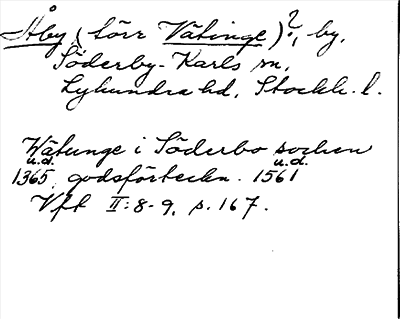 Åby (förr Vätinge)?, by,
Söderby-Karls sn,
Lyhundra hd, Stockh. l.
Wätunge i Söderbo sochen
u.d. u.d.
1365, godsförteckn. 1561
Vft II:8-9, s. 167.